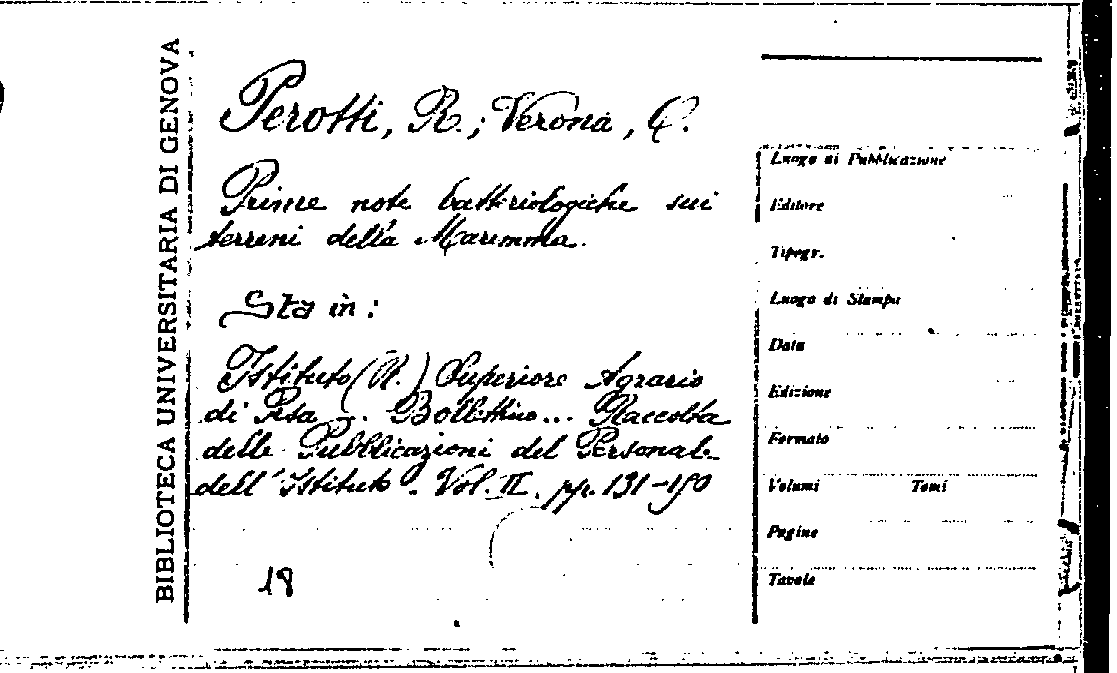 BIBLIOTECA UNIVERSITARIA DI GENOVA
Perotti, R.; Verona, O.
Prime note batteriologiche sui
terreni della Maremma.
Sta in:
Istituto (R.) Superiore Agrario
di Pisa ... Bollettino ... Raccolta
delle Pubblicazioni del Personale
dell'Istituto. Vol. II. pp. 131-150
18
Luogo di Pubblicazione
Editore
Tipogr.
Luogo di Stampa
Data
Edizione
Formato
Volumi Tomi
Pagine
Tavole